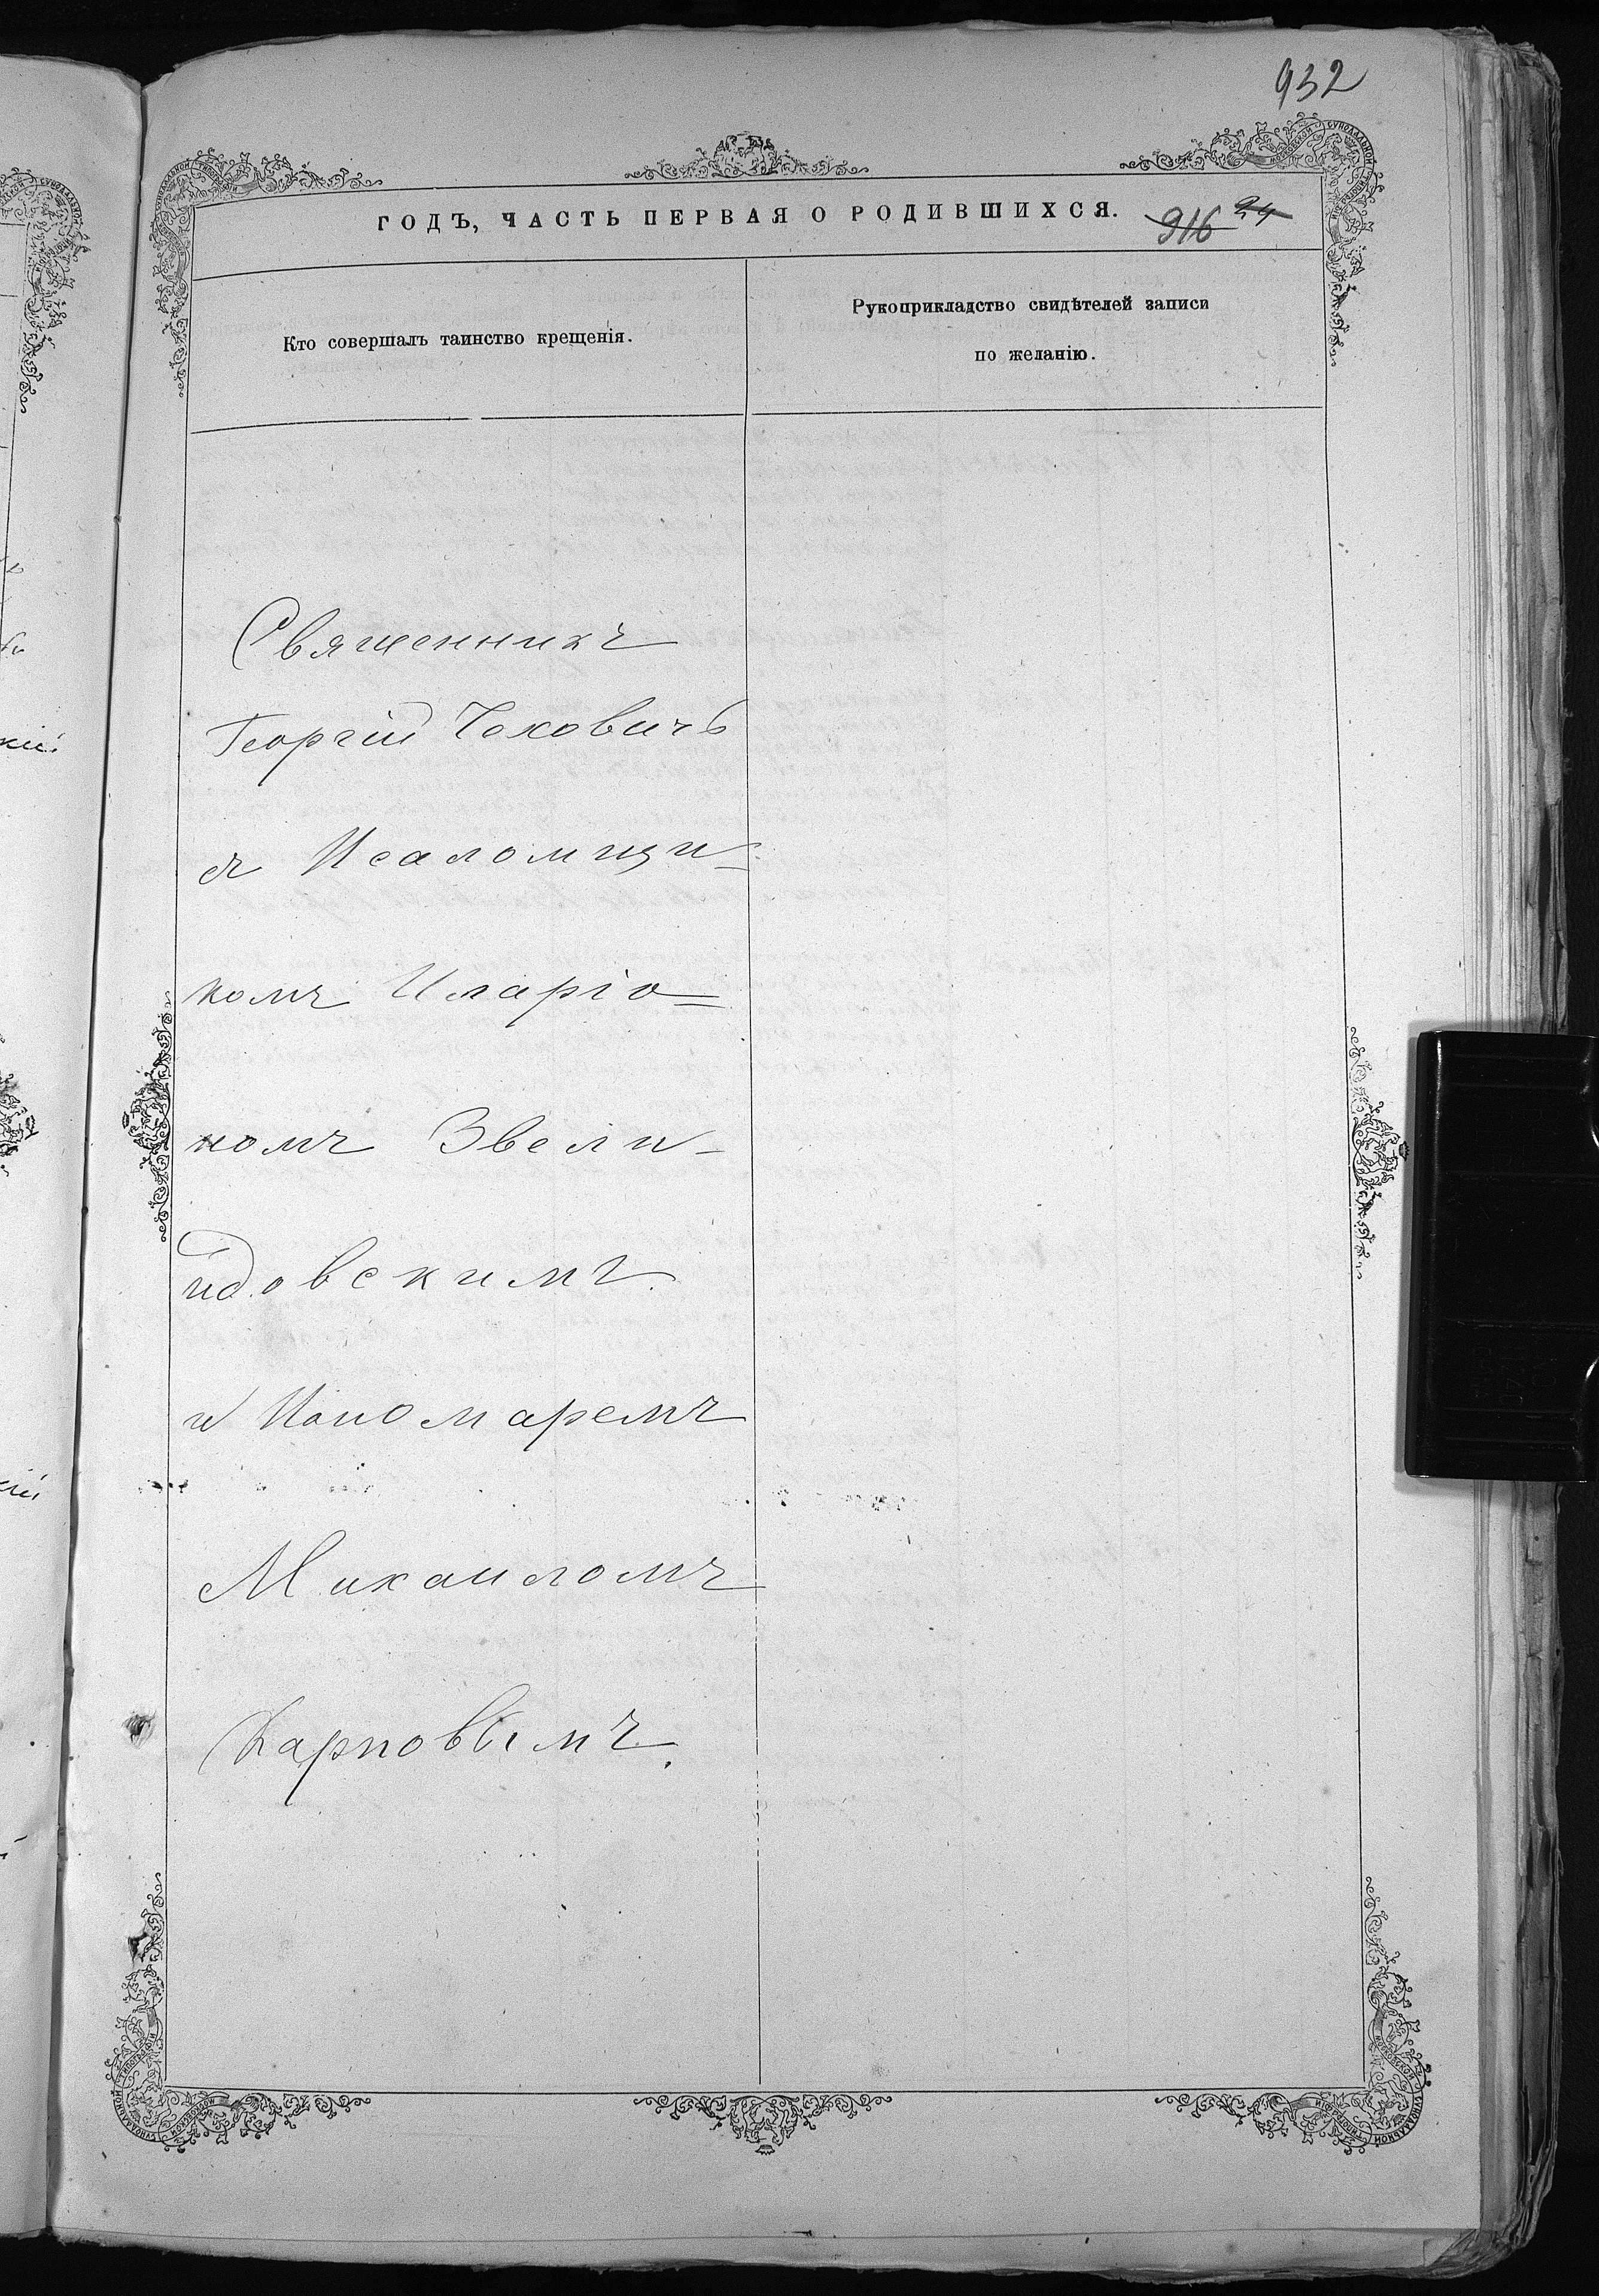 932
ГОДЪ, ЧАСТЬ ПЕРВАЯ О РОДИВШИХСЯ.
916 24
Кто совершалъ таинство крещенія.
Рукоприкладство свидѣтелей записи
по желанію.
Священникъ
Георгій Чековичъ
съ Псаломщи-
комъ Иларіо=
номъ Звели-
идовскимъ.
и Пономаремъ
Михаиломъ
Карповымъ.